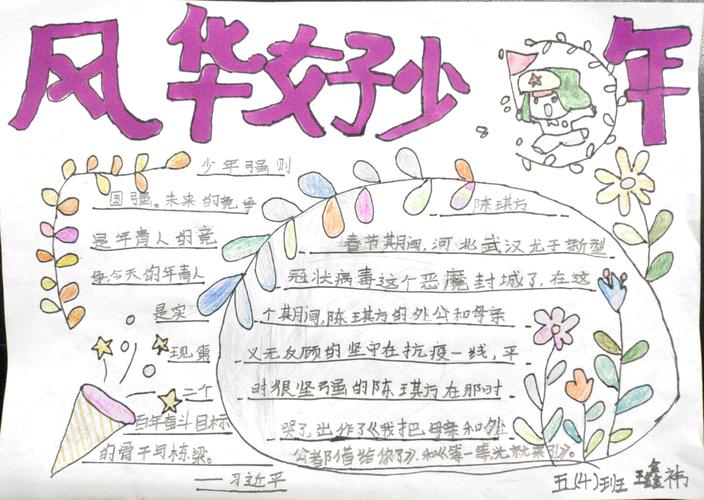 风华好少年
少年强则
国强。未来的竞争
是年青人的竞
争今天的年青人
是实
现第
一二个
百年奋斗目标
的骨干与栋梁。
——习近平
陈琪方
春节期间,河北武汉尤于新型
冠状病毒这个恶魔封城了,在这
个期间,陈琪方的外公和母亲
义无反顾的坚守在抗疫一线,平
时狠坚强的陈琪方在那时
哭了,出作了《我把母亲和外
公都借给你了》,和《笨一笨光就来
五(4)班 鑫祎